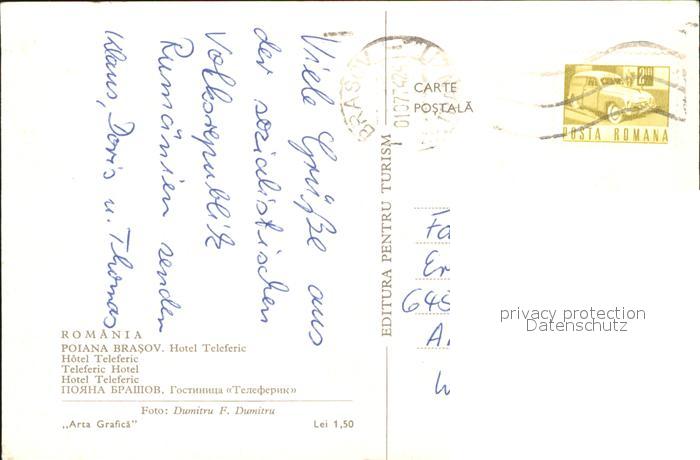 Viele Grüße aus
der sozialistischen
Volksrepublik
Rumänien senden
Klaus, Doris u. Thomas
ROMÂNIA
POIANA BRAȘOV. Hotel Teleferic
Hôtel Teleferic
Teleferic Hotel
Hotel Teleferic
ПОЯНА БРАШОВ. Гостиница «Телеферик»
Foto: Dumitru F. Dumitru
„Arta Grafică” Lei 1,50
EDITURA PENTRU TURISM
CARTE
POȘTALĂ
BRASOV
POSTA ROMANA
Fa
Er
645
A.
W
privacy protection
Datenschutz